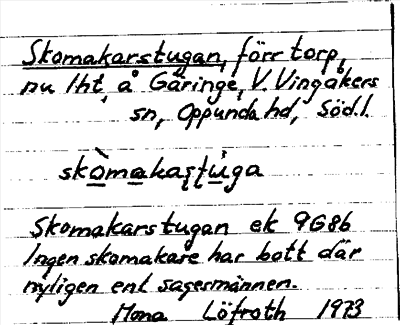 Skomakarstugan, förr torp,
nu lht, å Gäringe, V. Vingåkers
sn, Oppunda hd, Söd.l.
skòmakaʂʈúga
Skomakarstugan ek 9G8b
Ingen skomakare har bott där
nyligen enl sagesmannen.
Mona Löfroth 1973